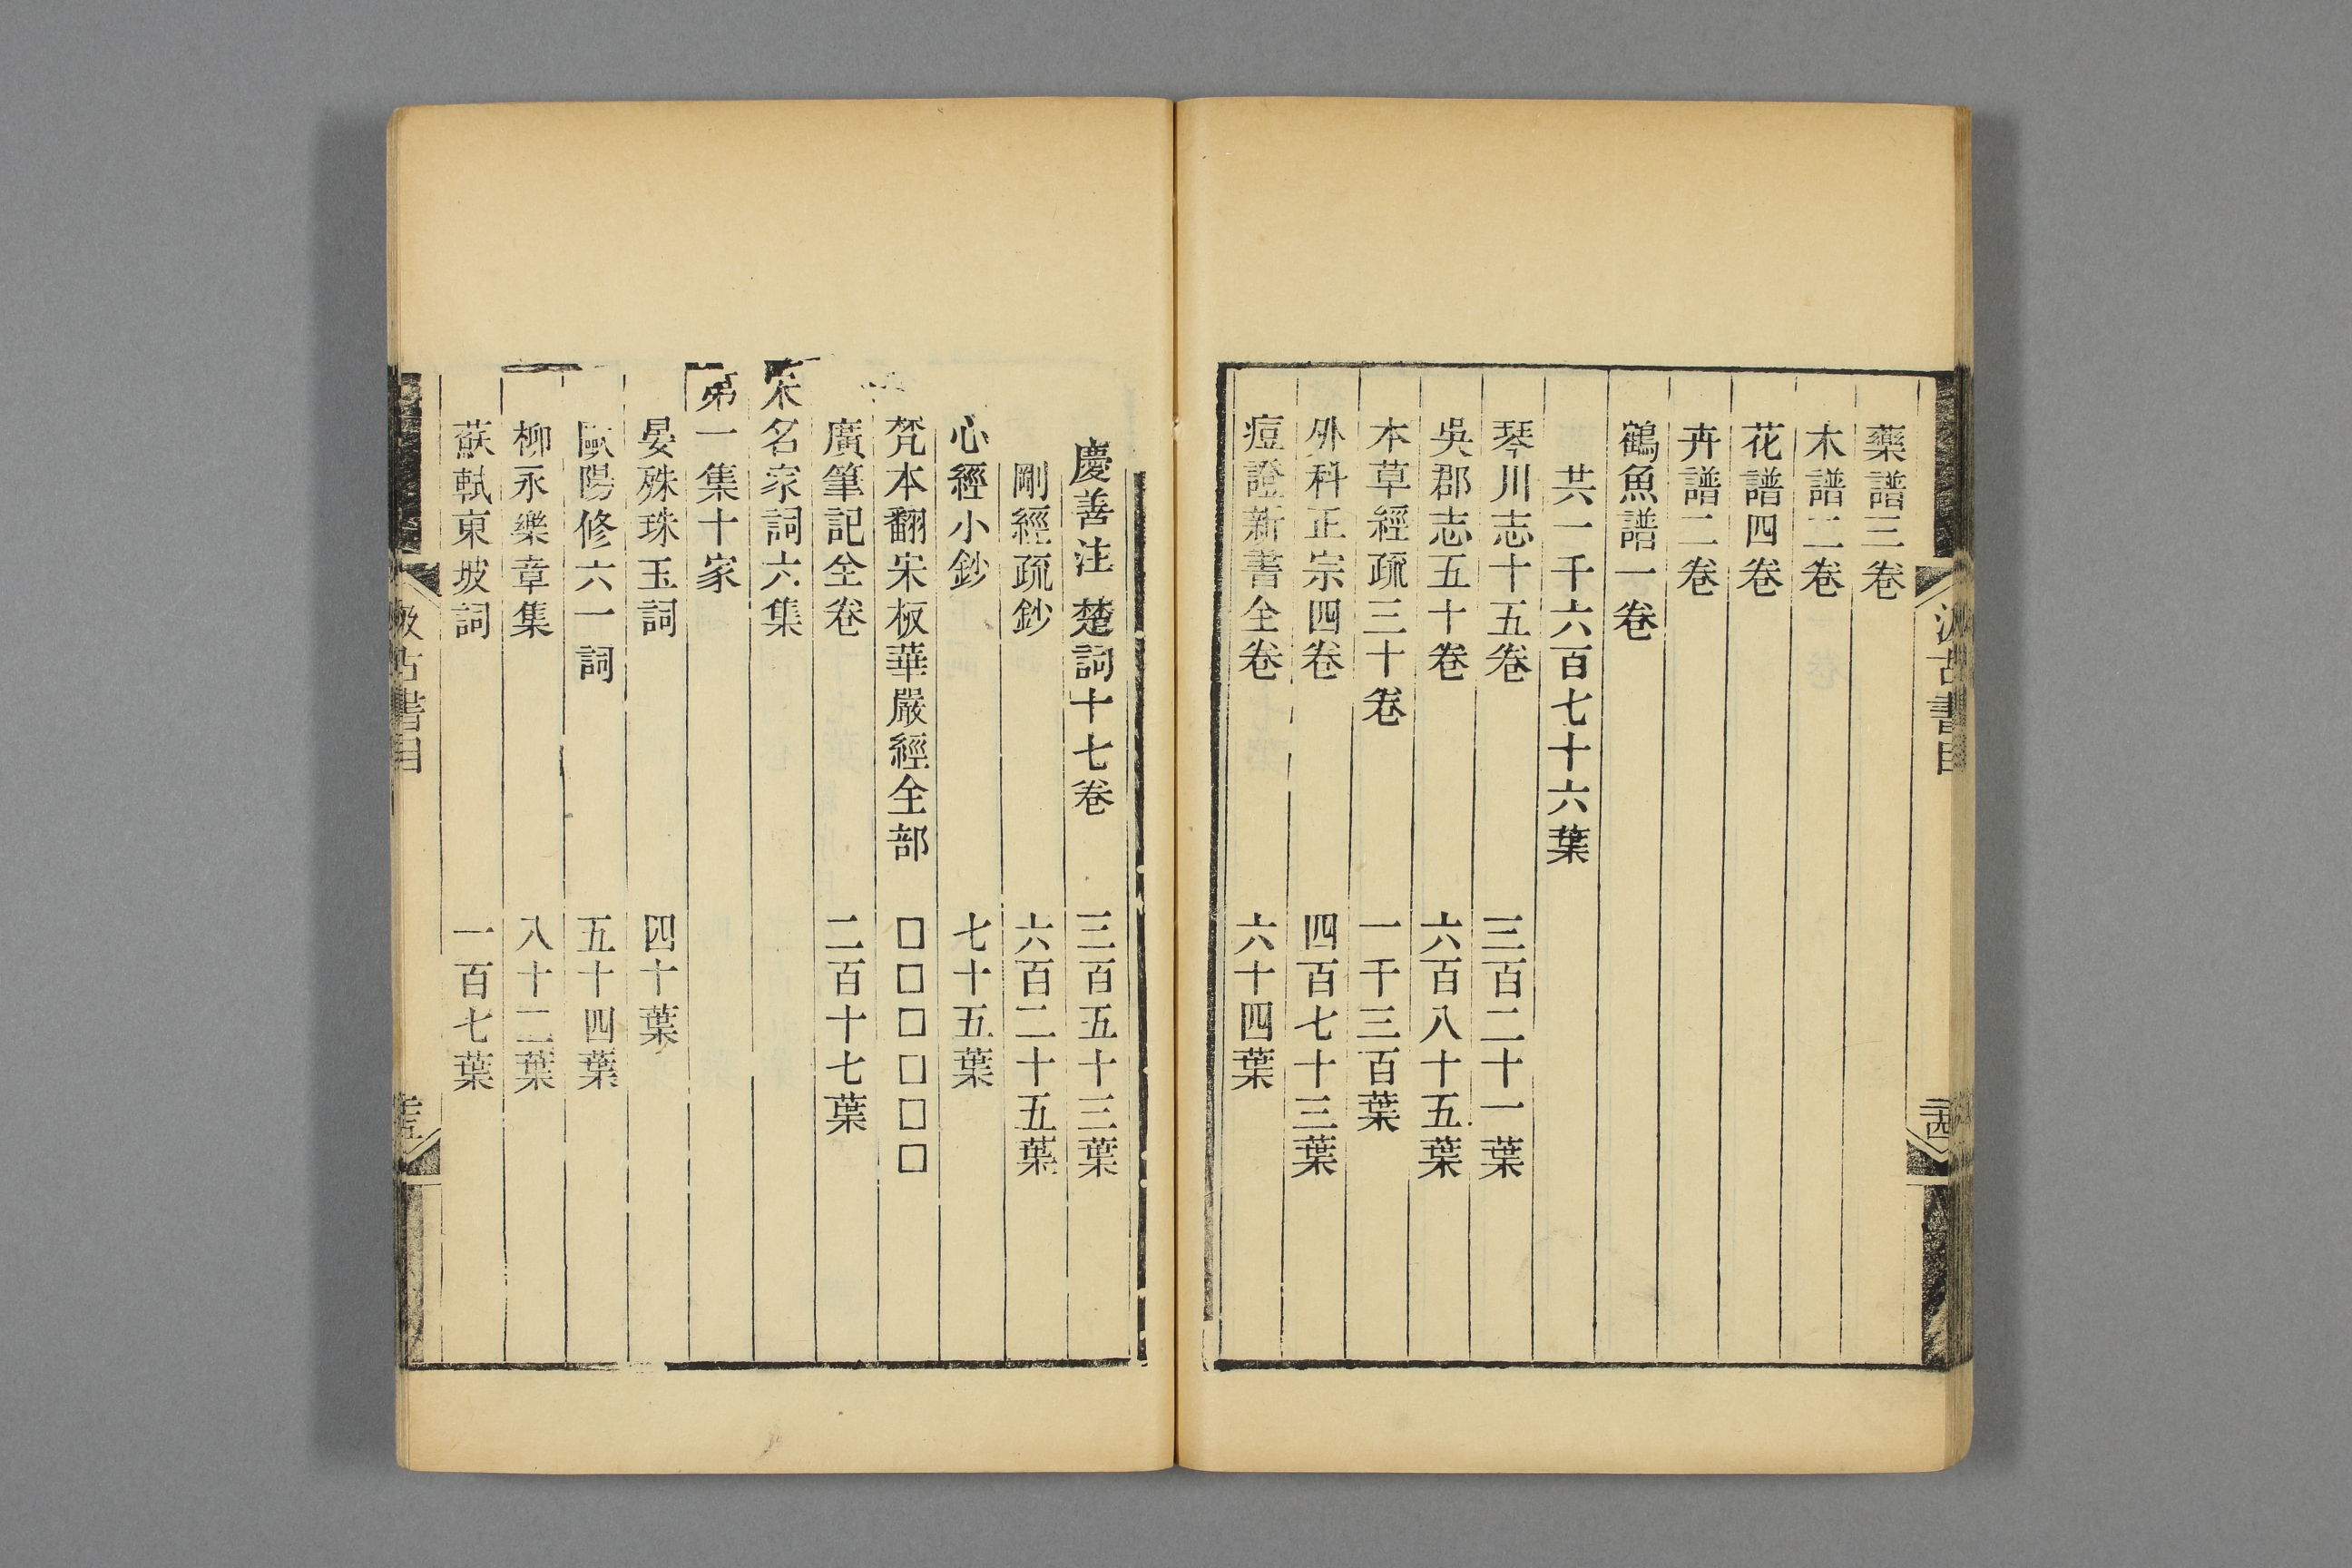 藥譜三卷
木譜二卷
花譜四卷
卉譜二卷
鶴魚譜一卷
共一千六百七十六葉
琴川志十五卷 三百二十一葉
吳郡志五十卷 六百八十五葉
本草經疏三十卷 一千三百葉
外科正宗四卷 四百七十三葉
痘證新書全卷 六十四葉
慶善注 楚詞十七卷 三百五十三葉
剛經疏鈔 六百二十五葉
心經小鈔 七十五葉
梵本翻宋板華嚴經全部 □□□□□□
廣筆記全卷 二百十七葉
宋名家詞六集
弟一集十家
晏殊珠玉詞 四十葉
歐陽修六一詞 五十四葉
柳永樂章集 八十二葉
蘇軾東坡詞 一百七葉
古書目